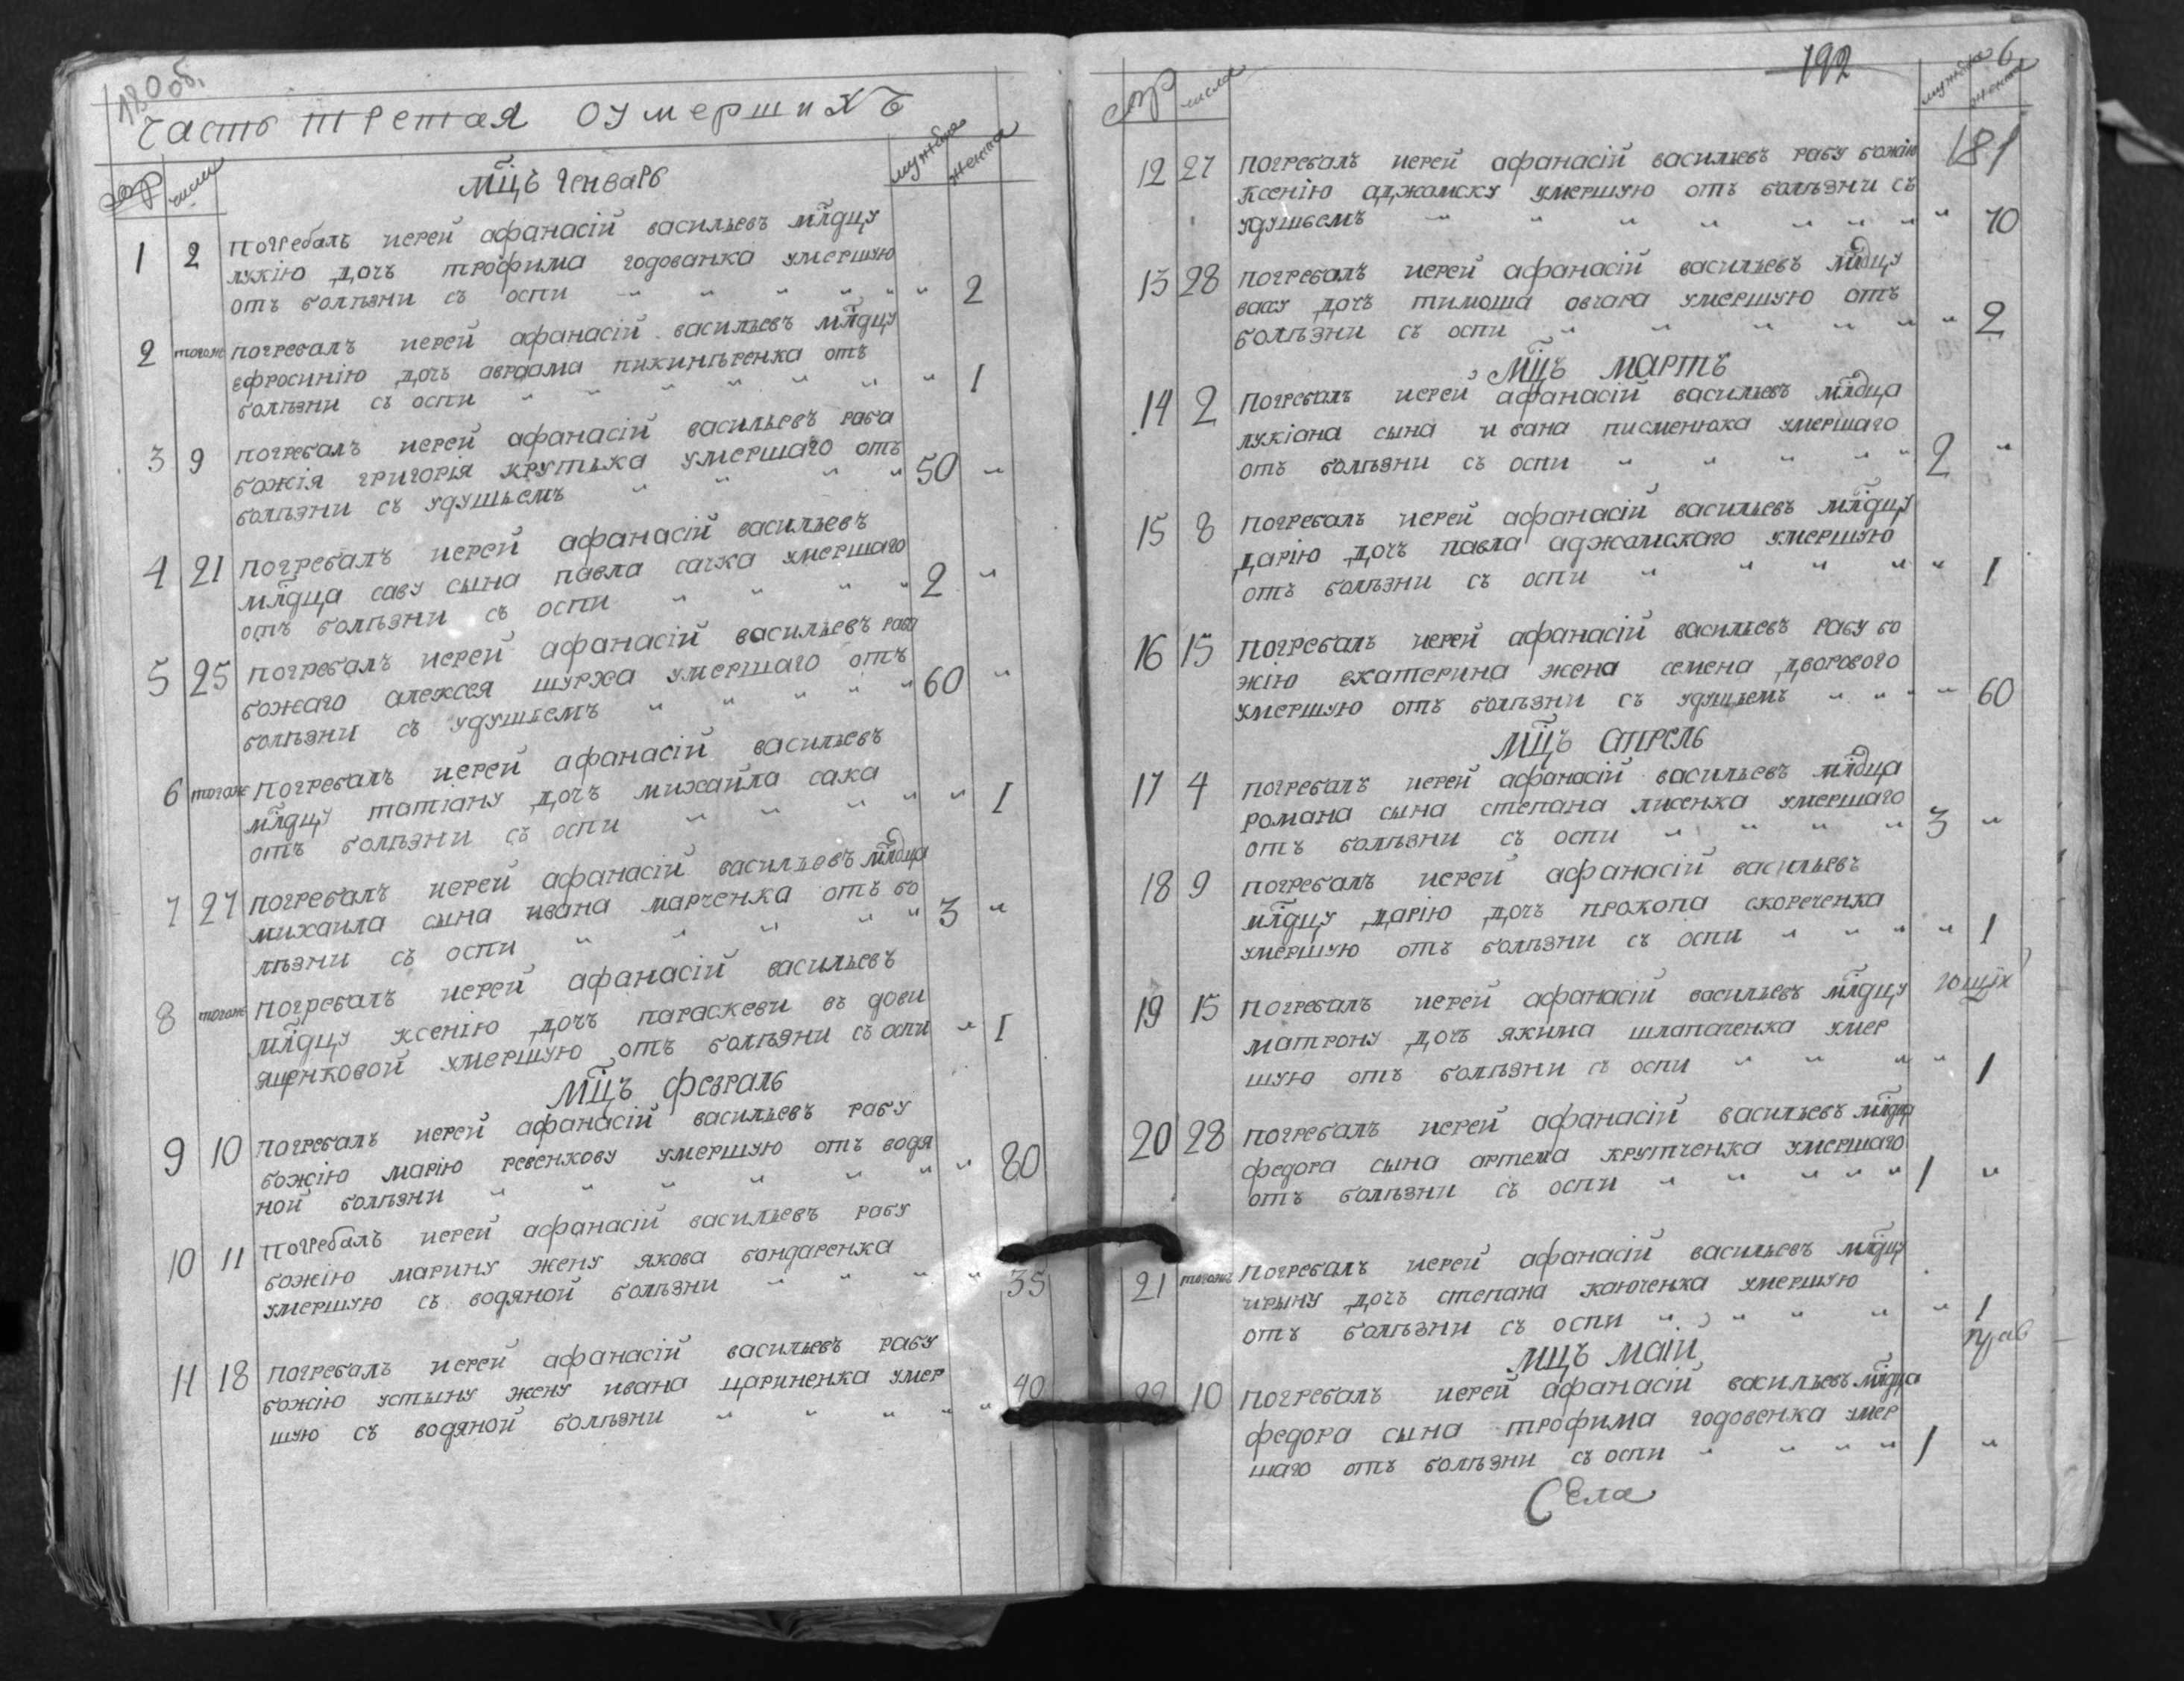 180 об.
часть третая оумершихъ
числа
мужеска
женска
мц҃ъ генварь
1 2 погребалъ иерей афанасій васильевъ млдцу
лукію дочъ трофима годованка умершую
отъ болѣзни съ оспи " " " " " " 2
2 тогоже погребалъ иерей афанасій васильевъ млдцу
ефросинію дочъ авраама пикинѣренка отъ
болѣзни съ оспи " " " " " " 1
3 9 погребалъ иерей афанасій васильевъ раба
божія григорія крутька умершаго отъ
болѣзни съ удушьемъ " " " " 50 "
4 21 погребалъ иерей афанасій васильевъ
млдца саву сына павла сачка умершаго
отъ болѣзни съ оспи " " " " 2 "
5 25 погребалъ иерей афанасій васильевъ раба
божаго алексея шурха умершаго отъ
болѣзни съ удушьемъ " " " " " 60 "
6 тогоже погребалъ иерей афанасій васильевъ
млдцу татіану дочъ михайла сака
отъ болѣзни съ оспи " " " " " 1
7 27 погребалъ иерей афанасій васильевъ млдца
михаила сына ивана марченка отъ бо
лѣзни съ оспи " " " " " 3 "
8 тогоже погребалъ иерей афанасій васильевъ
млдцу ксенію дочъ параскеви въ дови
ященковой умершую отъ болѣзни съ оспи " 1
мц҃ъ февраль
9 10 погребалъ иерей афанасій васильевъ рабу
божію марію ревенкову умершую отъ водя
ной болѣзни " " " " " " " 80
10 11 погребалъ иерей афанасій васильевъ рабу
божію марину жену якова бондаренка
умершую съ водяной болѣзни " " " " 35
11 18 погребалъ иерей афанасій васильевъ рабу
божію устыну жену ивана цариненка умер
шую съ водяной болѣзни " " " " " 40
192
6
числа
мужеска
женска
181
12 27 погребалъ иерей афанасій васильевъ рабу божію
ксенію аджамску умершую отъ болѣзни съ
удушьемъ " " " " " " " " 70
13 28 погребалъ иерей афанасій васильевъ млдцу
васу дочъ тимоша овчара умершую отъ
болѣзни съ оспи " " " " " " 2
мц҃ъ мартъ
14 2 погребалъ иерей афанасій васильевъ млдца
лукіана сына ивана писменюка умершаго
отъ болѣзни съ оспи " " " " " 2 "
15 8 погребалъ иерей афанасій васильевъ млдцу
дарію дочъ павла аджамскаго умершую
отъ болѣзни съ оспи " " " " " 1
16 15 погребалъ иерей афанасій васильевъ рабу бо
жію екатерина жена семена дворового
умершую отъ болѣзни съ удушьемъ " " " " 60
мц҃ъ апрель
17 4 погребалъ иерей афанасій васильевъ млдца
романа сына степана лисенка умершаго
отъ болѣзни съ оспи " " " " 3 "
18 9 погребалъ иерей афанасій васильевъ
млдцу дарію дочъ прокопа скореченка
умершую отъ болѣзни съ оспи " " " " 1
19 15 погребалъ иерей афанасій васильевъ млдцу
матрону дочъ якима шлапаченка умер
шую отъ болѣзни съ оспи " " " " 1
20 28 погребалъ иерей афанасій васильевъ млдца
федора сына артема крутченка умершаго
отъ болѣзни съ оспи " " " " " 1 "
21 тогоже погребалъ иерей афанасій васильевъ млдцу
ирыну дочъ степана канюченка умершую
отъ болѣзни съ оспи " " " " " 1
мц҃ъ маій
22 10 погребалъ иерей афанасій васильевъ млдца
федора сына трофима годовенка умер
шаго отъ болѣзни съ оспи " " " " 1 "
Села